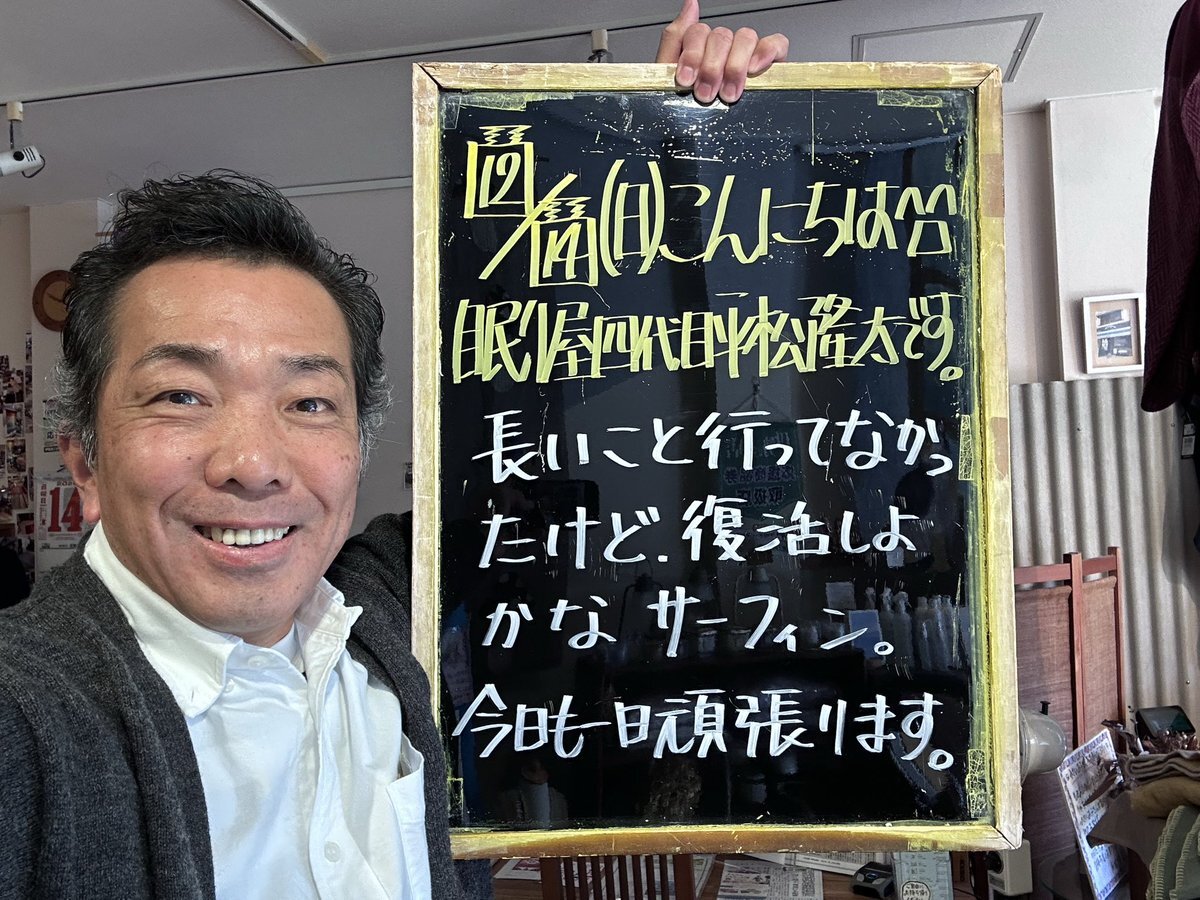 12/14(日)こんにちは^^
眠り屋四代目平松隆太です。
長いこと行ってなかっ
たけど、復活しよ
かな サーフィン。
今日も一日頑張ります。
14